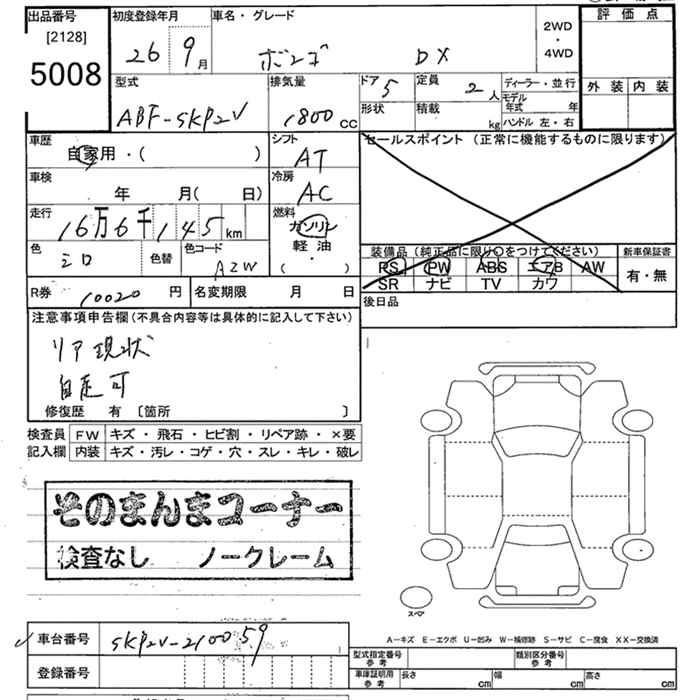 出品番号
[2128]
5008
初度登録年月
26 9月
車名・グレード
ボンゴ DX
2WD
・
4WD
評価点
外装 内装
型式
ABF-SKP2V
排気量
1800 cc
ドア 5
形状
定員 2人
積載 kg
ディーラー・並行
モデル年式 年
ハンドル 左・右
車歴
自家用・( )
シフト
AT
セールスポイント (正常に機能するものに限ります)
車検
年 月( 日)
冷房
AC
走行
16万6千145km
燃料
ガソリン
軽油
( ・ )
色
シロ
色替
色コード
AZW
装備品 (純正品に限り○をつけてください)
PS PW ABS エアB AW
SR ナビ TV カワ
新車保証書
有・無
R券 10020 円
名変期限 月 日
後日品
注意事項申告欄(不具合内容等は具体的に記入して下さい)
リア現状
自走可
修復歴 有 〔箇所 〕
検査員記入欄
FW キズ・飛石・ヒビ割・リペア跡・×要
内装 キズ・汚レ・コゲ・穴・スレ・キレ・破レ
そのまんまコーナー
検査なし ノークレーム
スペア
A-キズ E-エクボ U-凹み W-補修跡 S-サビ C-腐食 XX-交換済
車台番号 SKP2V-210059
登録番号
型式指定番号 参考
類別区分番号 参考
車庫証明用 参考 長さ cm 幅 cm 高さ cm